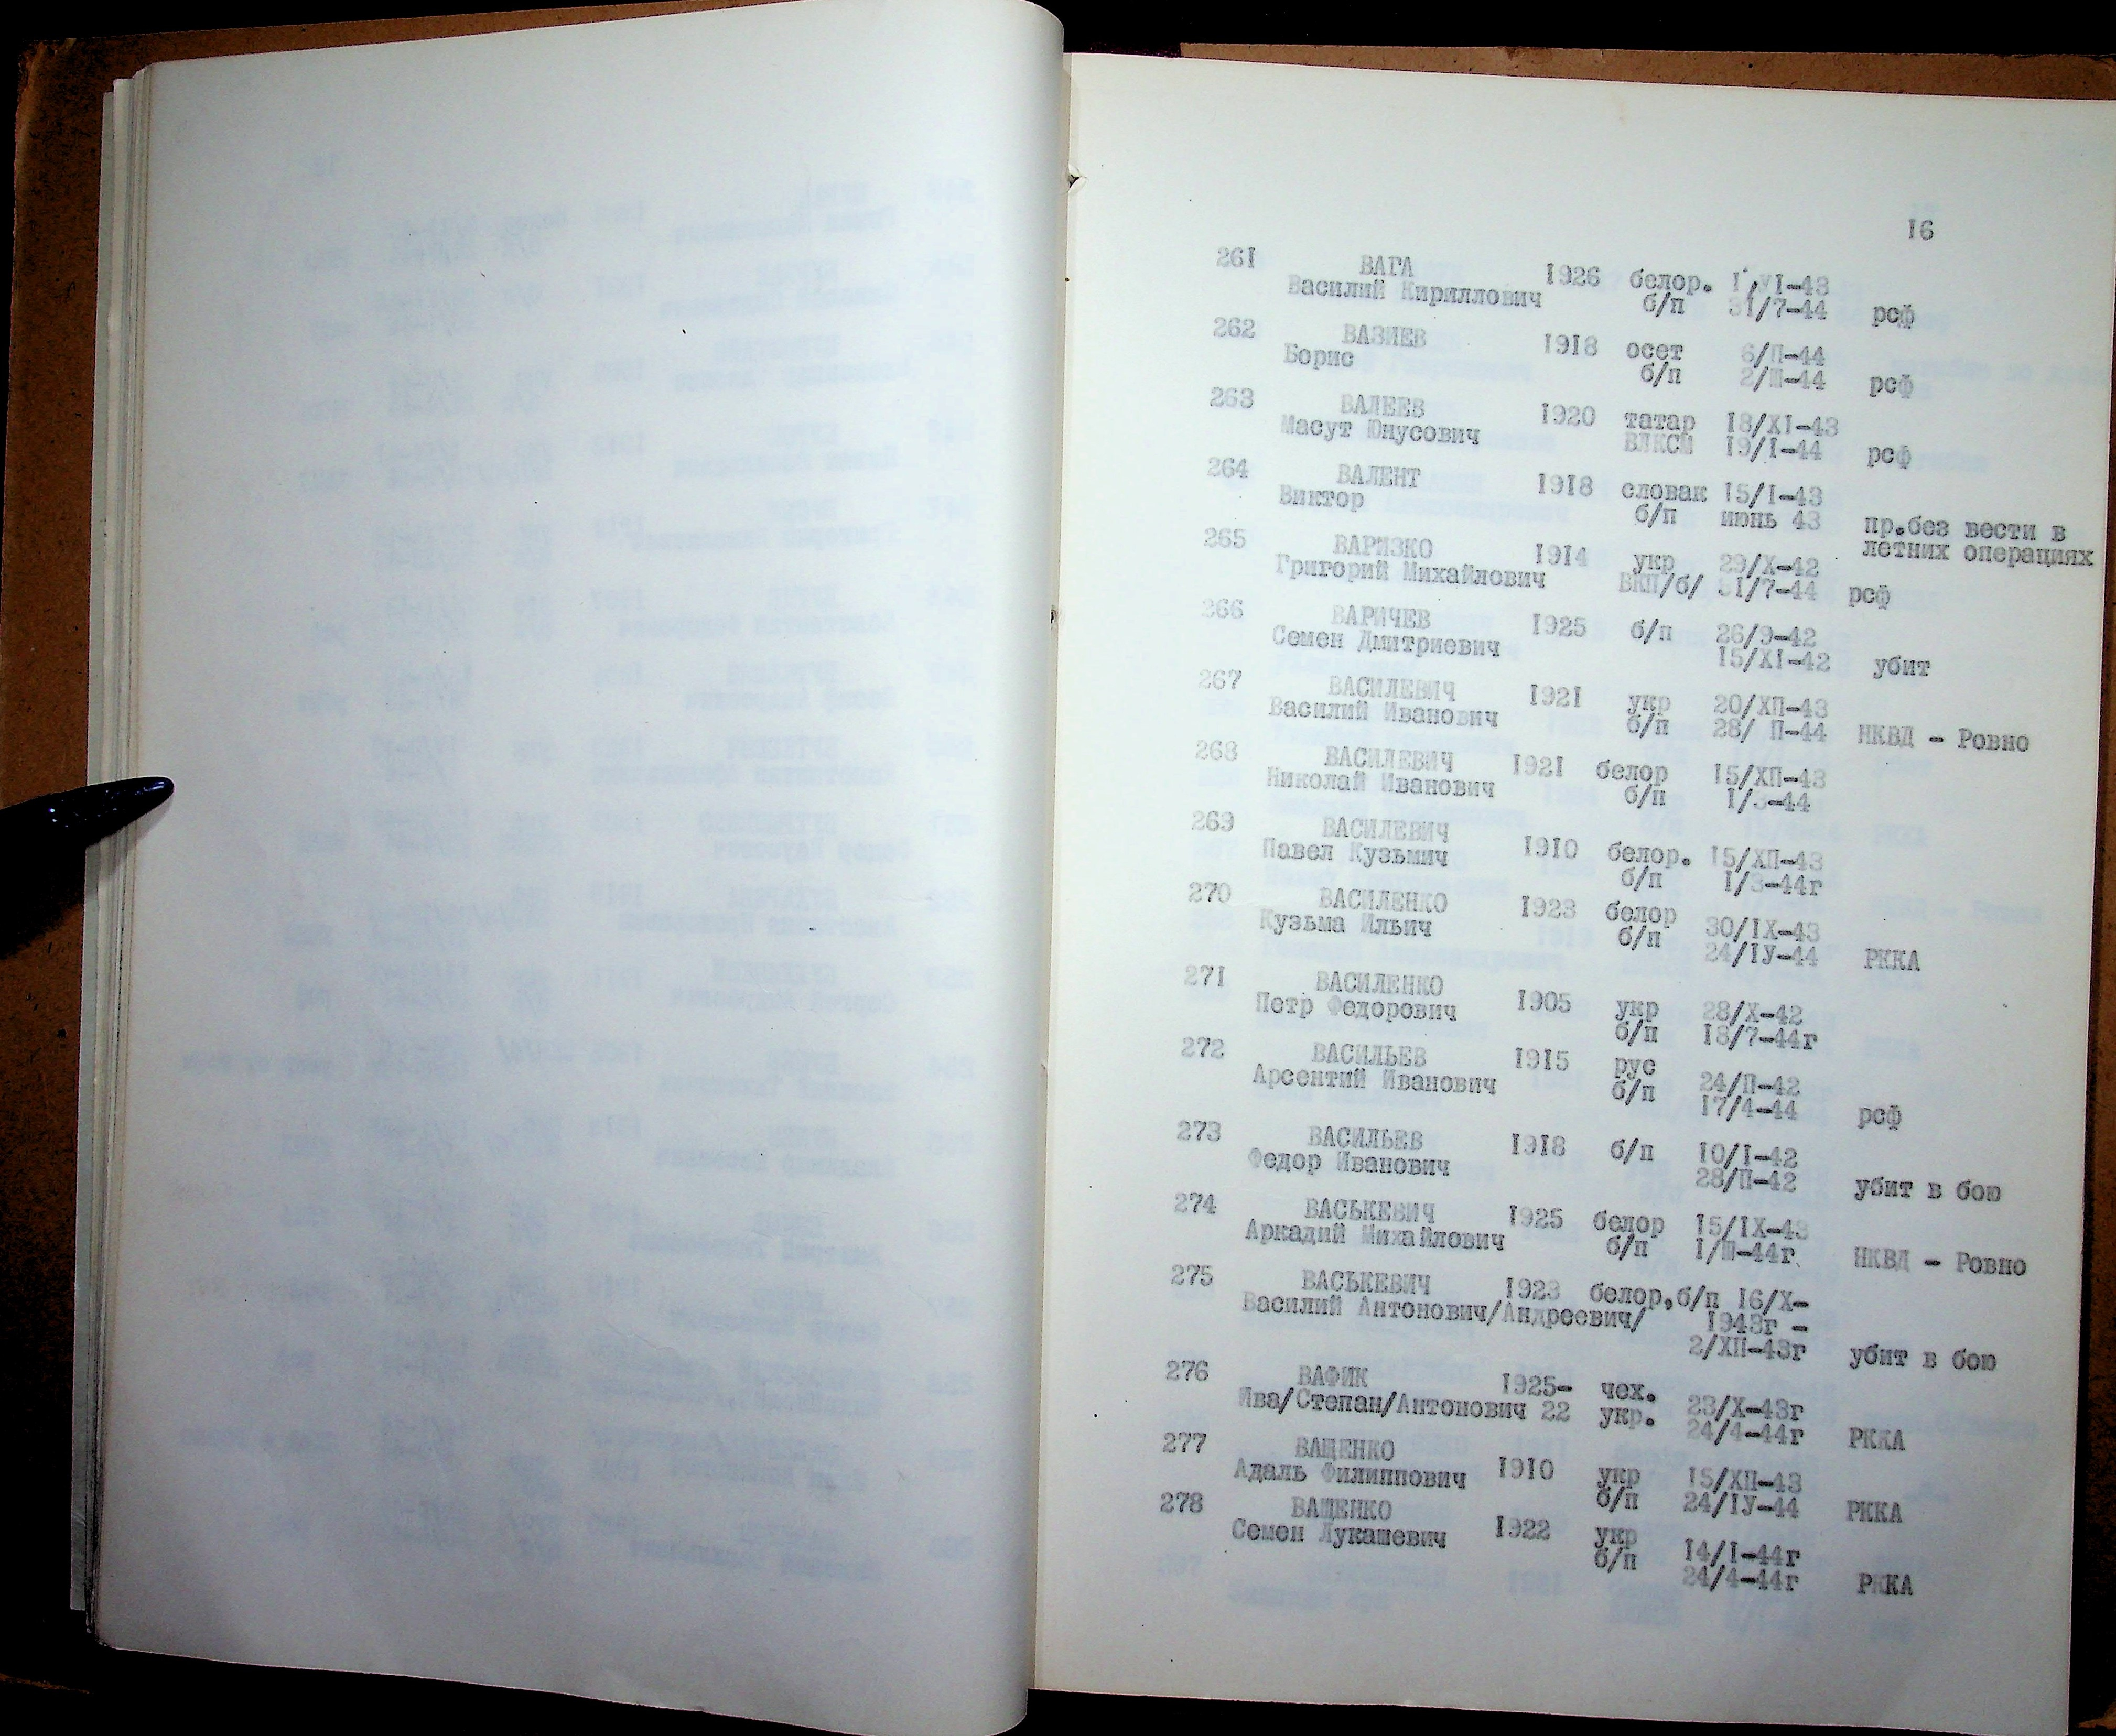 16
261 ВАГА 1926 белор. I/VI-43
Василий Кириллович б/п 31/7-44 рсф
262 ВАЗИЕВ 1918 осет 6/П-44
Борис б/п 2/Ш-44 рсф
263 ВАЛЕЕВ 1920 татар 18/XI-43
Масут Юнусович ВЛКСМ 19/I-44 рсф
264 ВАЛЕНТ 1918 словак 15/I-43
Виктор б/п июнь 43 пр.без вести в
летних операциях
265 ВАРИЗКО 1914 укр 29/X-42
Григорий Михайлович ВКП/б/ 31/7-44 рсф
266 ВАРИЧЕВ 1925 б/п 26/9-42
Семен Дмитриевич 15/XI-42 убит
267 ВАСИЛЕВИЧ 1921 укр 20/ХП-43
Василий Иванович б/п 28/ П-44 НКВД - Ровно
268 ВАСИЛЕВИЧ 1921 белор 15/ХП-43
Николай Иванович б/п I/3-44
269 ВАСИЛЕВИЧ 1910 белор. 15/ХП-43
Павел Кузьмич б/п I/3-44г
270 ВАСИЛЕНКО 1923 белор 30/IX-43
Кузьма Ильич б/п 24/IУ-44 РККА
271 ВАСИЛЕНКО 1905 укр 28/X-42
Петр Федорович б/п 18/7-44г
272 ВАСИЛЬЕВ 1915 рус 24/П-42
Арсентий Иванович б/п 17/4-44 рсф
273 ВАСИЛЬЕВ 1918 б/п 10/I-42
Федор Иванович 28/П-42 убит в бою
274 ВАСЬКЕВИЧ 1925 белор 15/IX-43
Аркадий Михайлович б/п I/Ш-44г. НКВД - Ровно
275 ВАСЬКЕВИЧ 1923 белор,б/п 16/X-
Василий Антонович/Андреевич/ 1943г -
2/ХП-43г убит в бою
276 ВАФИК 1925- чех. 23/X-43г
Ива/Степан/Антонович 22 укр. 24/4-44г РККА
277 ВАЩЕНКО 1910 укр 15/ХП-43
Адаль Филиппович б/п 24/IУ-44 РККА
278 ВАЩЕНКО 1922 укр 14/I-44г
Семен Лукашевич б/п 24/4-44г РККА